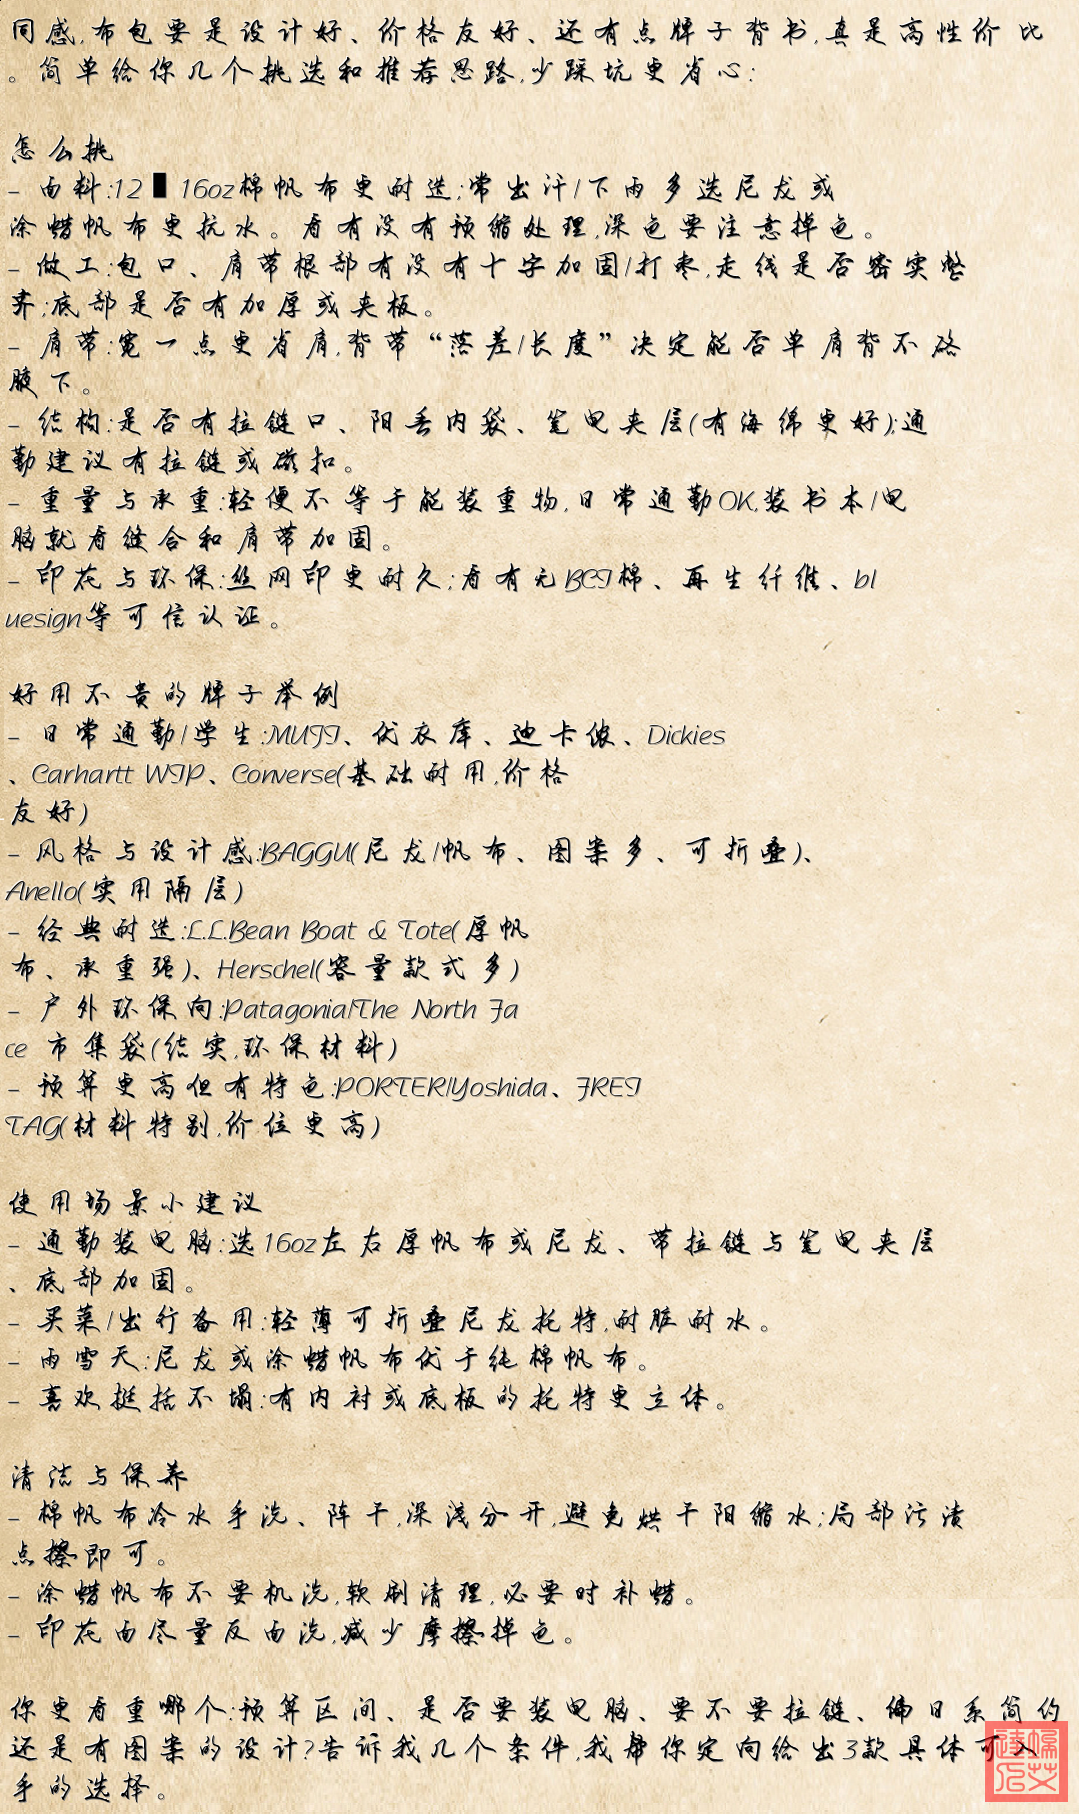 同感,布包要是设计好、价格友好、还有点牌子背书,真是高性价比
。简单给你几个挑选和推荐思路,少踩坑更省心:
怎么挑
- 面料:12▮16oz棉帆布更耐造;常出汗/下雨多选尼龙或
涂蜡帆布更抗水。看有没有预缩处理,深色要注意掉色。
- 做工:包口、肩带根部有没有十字加固/打枣,走线是否密实整
齐;底部是否有加厚或夹板。
- 肩带:宽一点更省肩,背带“落差/长度”决定能否单肩背不硌
腋下。
- 结构:是否有拉链口、阳丢内袋、笔电夹层(有海绵更好);通
勤建议有拉链或磁扣。
- 重量与承重:轻便不等于能装重物,日常通勤OK,装书本/电
脑就看缝合和肩带加固。
- 印花与环保:丝网印更耐久;看有无BCI棉、再生纤维、bl
uesign等可信认证。
好用不贵的牌子举例
- 日常通勤/学生:MUJI、优衣库、迪卡侬、Dickies
、Carhartt WIP、Converse(基础耐用,价格
友好)
- 风格与设计感:BAGGU(尼龙/帆布、图案多、可折叠)、
Anello(实用隔层)
- 经典耐造:L.L.Bean Boat & Tote(厚帆
布、承重强)、Herschel(容量款式多)
- 户外环保向:Patagonia/The North Fa
ce 市集袋(结实,环保材料)
- 预算更高但有特色:PORTER/Yoshida、FREI
TAG(材料特别,价位更高)
使用场景小建议
- 通勤装电脑:选16oz左右厚帆布或尼龙、带拉链与笔电夹层
、底部加固。
- 买菜/出行备用:轻薄可折叠尼龙托特,耐脏耐水。
- 雨雪天:尼龙或涂蜡帆布优于纯棉帆布。
- 喜欢挺括不塌:有内衬或底板的托特更立体。
清洁与保养
- 棉帆布冷水手洗、阵干,深浅分开,避免烘干阳缩水;局部污渍
点擦即可。
- 涂蜡帆布不要机洗,软刷清理,必要时补蜡。
- 印花面尽量反面洗,减少摩擦掉色。
你更看重哪个:预算区间、是否要装电脑、要不要拉链、偏日系简约
还是有图案的设计?告诉我几个条件,我帮你定向给出3款具体可入
手的选择。